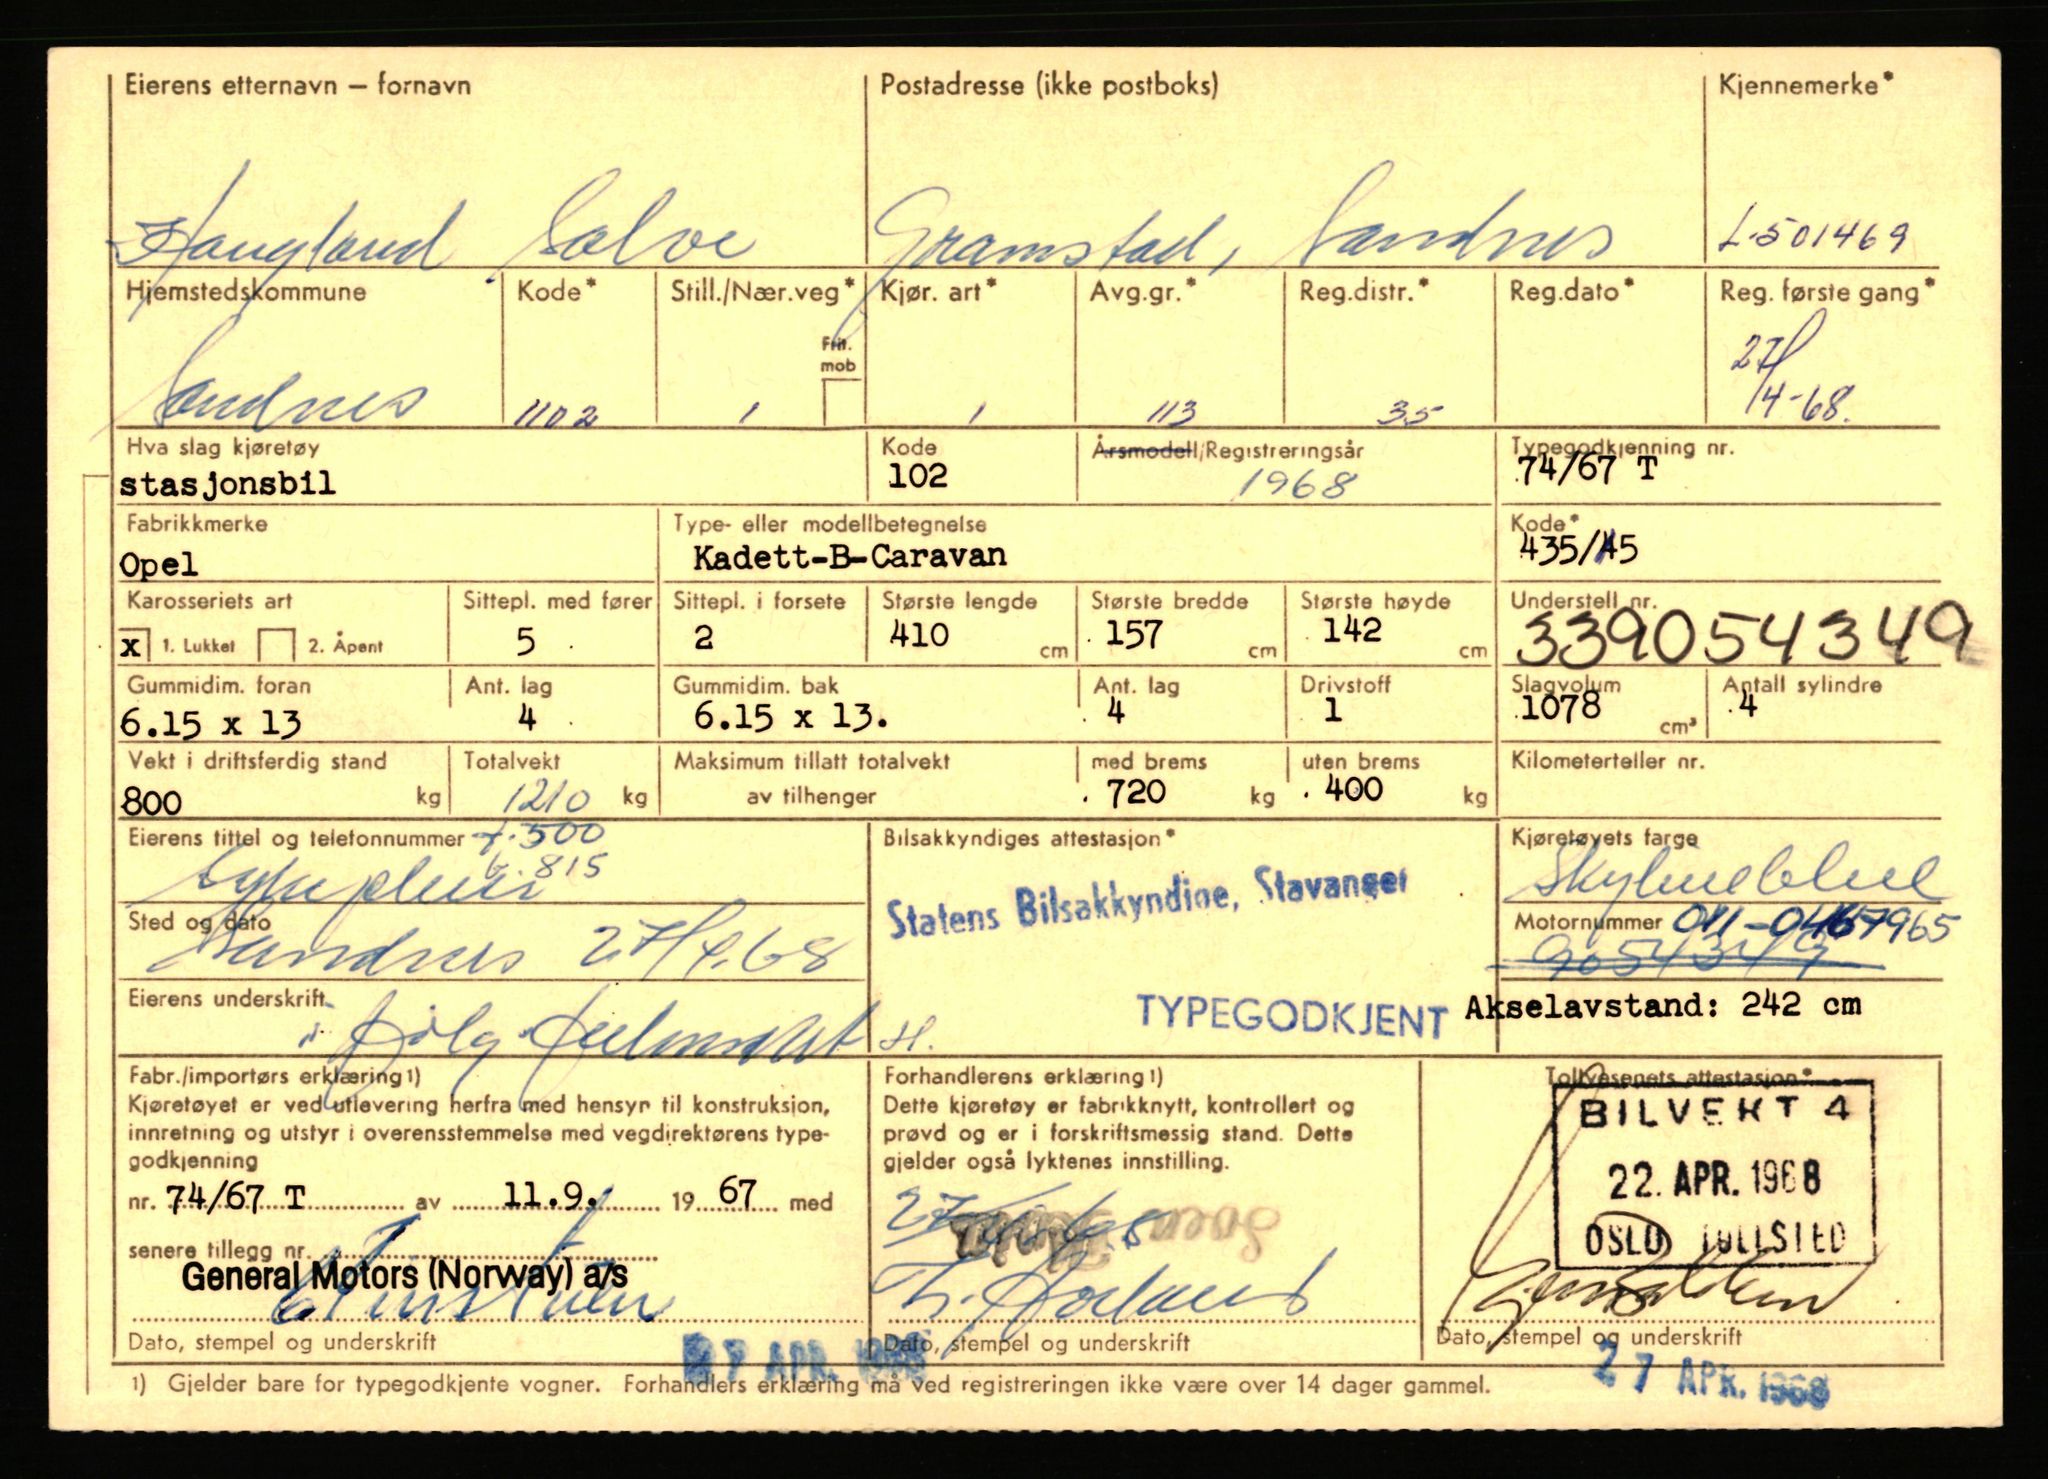 Eierens etternavn – fornavn Postadresse (ikke postboks) Kjennemerke*
Haugland Salve Gramstad, Sandnes L-501469
Hjemstedskommune Kode* Still./Nær.veg* Kjør. art* Avg.gr.* Reg.distr.* Reg.dato* Reg. første gang*
Frit. mob
Sandnes 1102 1 1 113 35 27/4-68.
Hva slag kjøretøy Kode Årsmodell/Registreringsår Typegodkjenning nr.
stasjonsbil 102 1968 74/67 T
Fabrikkmerke Type- eller modellbetegnelse Kode*
Opel Kadett-B-Caravan 435/45
Karosseriets art Sittepl. med fører Sittepl. i forsete Største lengde Største bredde Største høyde Understell nr.
x 1. Lukket 2. Åpent 5 2 410 cm 157 cm 142 cm 339054349
Gummidim. foran Ant. lag Gummidim. bak Ant. lag Drivstoff Slagvolum Antall sylindre
6.15 x 13 4 6.15 x 13. 4 1 1078 cm³ 4
Vekt i driftsferdig stand Totalvekt Maksimum tillatt totalvekt med brems uten brems Kilometerteller nr.
800 kg 1210 kg av tilhenger 720 kg 400 kg
Eierens tittel og telefonnummer f. 500 Bilsakkyndiges attestasjon* Kjøretøyets farge
b. 815 Statens Bilsakkyndige, Stavanger
Sted og dato Motornummer 011-0467965
Sandnes 27/4.68 9054349
Eierens underskrift TYPEGODKJENT Akselavstand: 242 cm
Fabr./importørs erklæring 1) Forhandlerens erklæring 1) Tollvesenets attestasjon*
Kjøretøyet er ved utlevering herfra med hensyn til konstruksjon, Dette kjøretøy er fabrikknytt, kontrollert og BILVEKT 4
innretning og utstyr i overensstemmelse med vegdirektørens type- prøvd og er i forskriftsmessig stand. Dette
godkjenning gjelder også lyktenes innstilling. 22. APR. 1968
nr. 74/67 T av 11.9. 19 67 med
senere tillegg nr. OSLO TOLLSTED
General Motors (Norway) a/s
Dato, stempel og underskrift Dato, stempel og underskrift Dato, stempel og underskrift
27 APR. 1968 27 APR. 1968
1) Gjelder bare for typegodkjente vogner. Forhandlers erklæring må ved registreringen ikke være over 14 dager gammel.